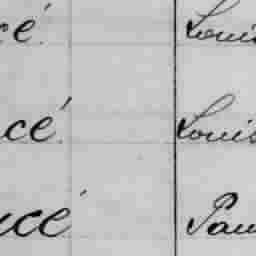 cé Louis
cé Louis
ucé Pau